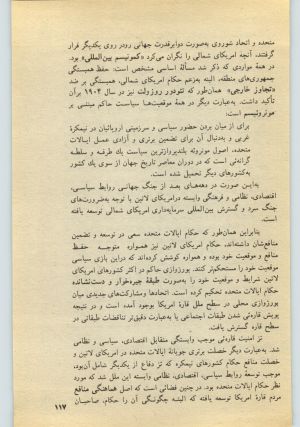 متحده و اتحاد شوروی به‌صورت دوابرقدرت جهانی رودر روی یکدیگر قرار
گرفتند، آنچه امریکای شمالی را نگران می‌کرد «کمونیسم بین‌المللی» بود.
در همهٔ مواردی که ذکر شد مسألهٔ اساسی مشخص است: حفظ همبستگی
جمهوری‌های منطقه، البته به‌زعم حکام امریکای شمالی، همبستگی بر ضد
«تجاوز خارجی» همان‌طور که تئودور روزولت نیز در سال ۱۹۰۴ برآن
تأکید داشت. به‌عبارت دیگر در همهٔ موقعیت‌ها سیاست حاکم مبتنی بر
مونروئیسم است:
برای از میان بردن حضور سیاسی و سرزمینی اروپائیان در نیمکرهٔ
غربی و به‌دنبال آن برای تضمین برتری و آزادی عمل ایالات
متحده، اصول مونروئه بلندپروازترین سیاست یك طرفه و سلطه
گرانه‌ئی است که در دوران معاصر تاریخ جهان از سوی یك کشور
به‌کشورهای دیگر تحمیل شده است.
به‌این صورت در دهه‌های بعد از جنگ جهانی روابط سیاسی،
اقتصادی، نظامی و فرهنگی وابسته درامریکای لاتین با توجه به‌ضرورت‌های
جنگ سرد و گسترش بین‌المللی سرمایه‌داری امریکای شمالی توسعه یافته
است.
بنابراین همان‌طور که حکام ایالات متحده سعی در توسعه و تضمین
منافع‌شان داشته‌اند، حکام امریکای لاتین نیز همواره متوجه حفظ
منافع و موقعیت خود بوده و همواره کوشش کرده‌اند که دراین بازی سیاسی
موقعیت خود را مستحکم‌تر کنند. بورژوازی حاکم در اکثر کشورهای امریکای
لاتین شرایط و موقعیت خود را به‌صورت طبقهٔ جیره‌خوار و دست‌نشانده
حکام ایالات متحده تحکیم کرده است. اتحادها و مشارکت‌های جدیدی میان
بورژوازی محلی در سطح ملل قارهٔ امریکا بوجود آمده است و در نتیجه
پویش قاره‌ئی شدن طبقات اجتماعی یا به‌عبارت دقیق‌تر تناقضات طبقاتی در
سطح قاره گسترش یافت.
تز امنیت قاره‌ئی موجب وابستگی متقابل اقتصادی، سیاسی و نظامی
شد. به‌عبارت دیگر خصلت برتری جویانهٔ ایالات متحده در امریکای لاتین و
خصلت منافع حکام کشورهای نیمکره که تز دفاع از یکدیگر شامل آن‌بود،
موجب توسعهٔ روابط سیاسی، اقتصادی، نظامی وابسته این ملل شد که مورد
نظر حکام ایالات متحده بود. در چنین فضائی است که اصل هماهنگی منافع
مردم قارهٔ امریکا توسعه یافته که البته چگونگی آن را حکام، صاحبان
۱۱۷